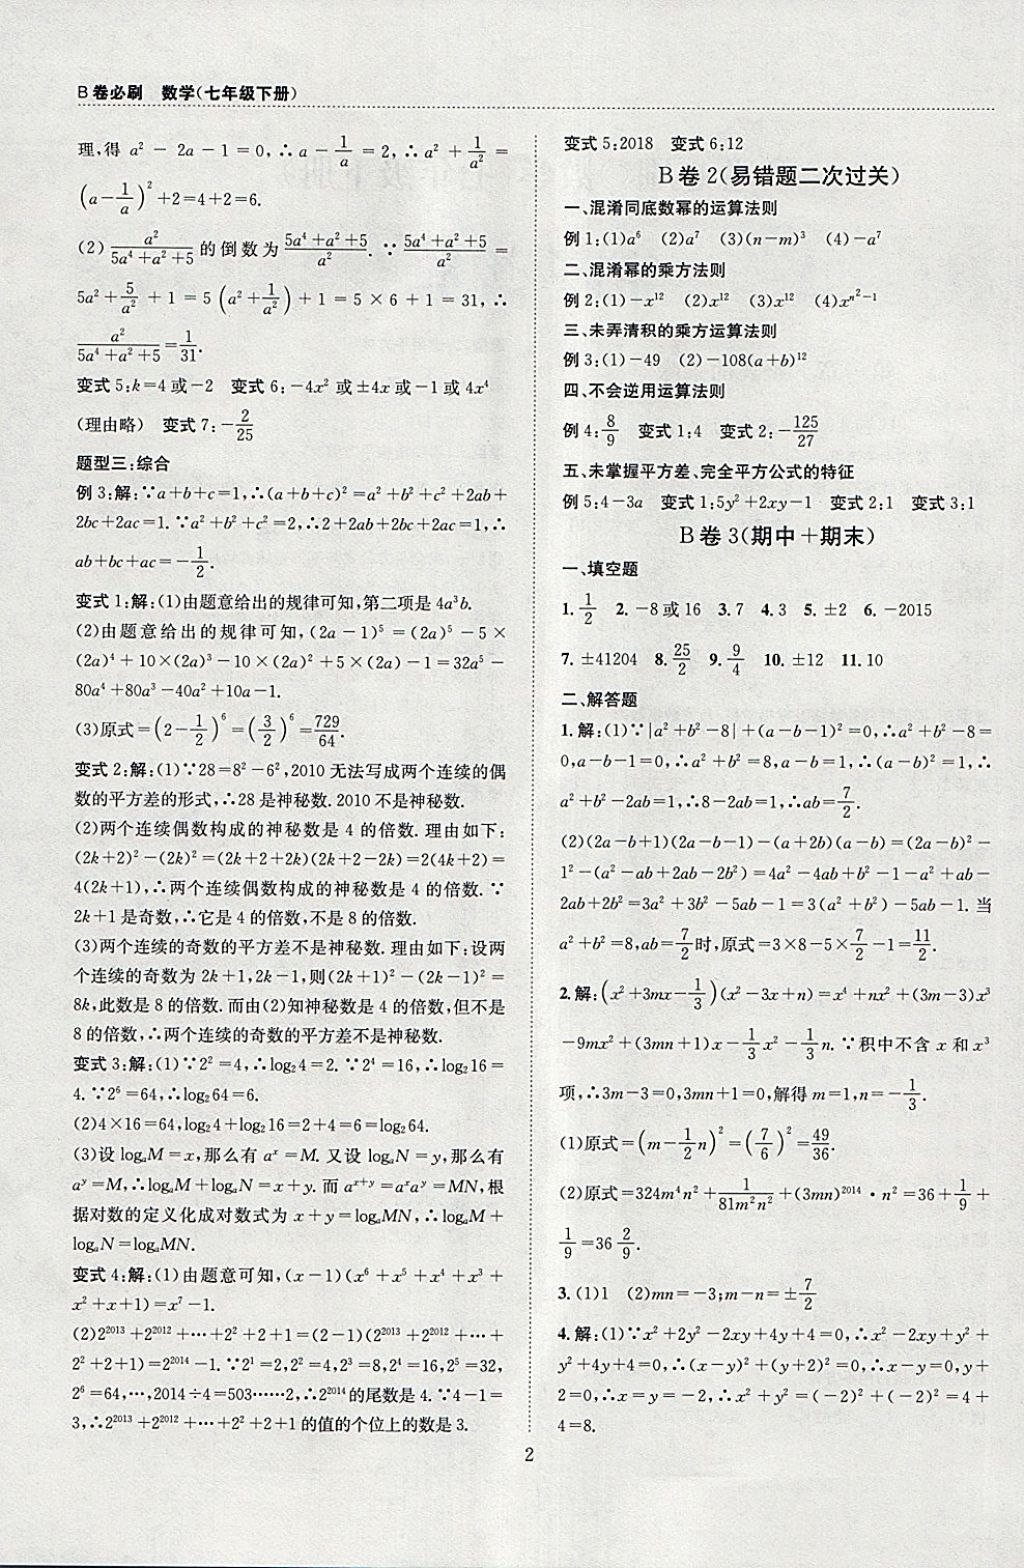 B卷必刷　数学(七年级下册)
理,得 a² － 2a － 1 = 0, ∴ a － 1/a = 2, ∴ a² + 1/a² =
(a－1/a)²+2=4+2=6.
(2) a²/(5a⁴+a²+5) 的倒数为 (5a⁴+a²+5)/a². ∵ (5a⁴+a²+5)/a² =
5a²+5/a² + 1 = 5(a²+1/a²) + 1 = 5 × 6 + 1 = 31, ∴
a²/(5a⁴+a²+5)=1/31.
变式 5:k=4 或－2　变式 6:－4x² 或±4x 或－1 或 4x⁴
(理由略)　变式 7:－2/25
题型三:综合
例 3:解:∵a+b+c=1,∴(a+b+c)²=a²+b²+c²+2ab+
2bc+2ac=1. ∵a²+b²+c²=2,∴2+2ab+2bc+2ac=1,∴
ab+bc+ac=－1/2.
变式 1:解:(1)由题意给出的规律可知,第二项是 4a³b.
(2)由题意给出的规律可知,(2a－1)⁵=(2a)⁵－5×
(2a)⁴+10×(2a)³－10×(2a)²+5×(2a)－1=32a⁵－
80a⁴+80a³－40a²+10a－1.
(3)原式=(2－1/2)⁶=(3/2)⁶=729/64.
变式 2:解:(1)∵28=8²－6²,2010 无法写成两个连续的偶
数的平方差的形式,∴28 是神秘数. 2010 不是神秘数.
(2)两个连续偶数构成的神秘数是 4 的倍数. 理由如下:
(2k+2)²－(2k)²=(2k+2+2k)(2k+2－2k)=2(4k+2)=
4(2k+1),∴两个连续偶数构成的神秘数是 4 的倍数. ∵
2k+1 是奇数,∴它是 4 的倍数,不是 8 的倍数.
(3)两个连续的奇数的平方差不是神秘数. 理由如下:设两
个连续的奇数为 2k+1,2k－1,则(2k+1)²－(2k－1)²=
8k,此数是 8 的倍数. 而由(2)知神秘数是 4 的倍数,但不是
8 的倍数,∴两个连续的奇数的平方差不是神秘数.
变式 3:解:(1)∵2²=4,∴log₂4=2. ∵2⁴=16,∴log₂16=
4. ∵2⁶=64,∴log₂64=6.
(2)4×16=64,log₂4+log₂16=2+4=6=log₂64.
(3)设 logₐM=x,那么有 aˣ=M. 又设 logₐN=y,那么有
aʸ=M,∴logₐM+logₐN=x+y. 而 aˣ⁺ʸ=aˣaʸ=MN,根
据对数的定义化成对数式为 x+y=logₐMN,∴logₐM+
logₐN=logₐMN.
变式 4:解:(1)由题意可知,(x－1)(x⁶+x⁵+x⁴+x³+
x²+x+1)=x⁷－1.
(2)2²⁰¹³+2²⁰¹²+…+2²+2+1=(2－1)(2²⁰¹³+2²⁰¹²+…+
2²+2+1)=2²⁰¹⁴－1. ∵2¹=2,2²=4,2³=8,2⁴=16,2⁵=32,
2⁶=64,…,2014÷4=503……2,∴2²⁰¹⁴的尾数是 4. ∵4－1=
3,∴2²⁰¹³+2²⁰¹²+…+2²+2+1 的值的个位上的数是 3.
变式 5:2018　变式 6:12
B卷 2(易错题二次过关)
一、混淆同底数幂的运算法则
例 1:(1)a⁶　(2)a⁷　(3)(n－m)³　(4)－a⁷
二、混淆幂的乘方法则
例 2:(1)－x¹²　(2)x¹²　(3)x¹²　(4)x^(n²－1)
三、未弄清积的乘方运算法则
例 3:(1)－49　(2)－108(a+b)¹²
四、不会逆用运算法则
例 4:8/9　变式 1:4　变式 2:－125/27
五、未掌握平方差、完全平方公式的特征
例 5:4－3a　变式 1:5y²+2xy－1　变式 2:1　变式 3:1
B卷 3(期中+期末)
一、填空题
1. 1/2　2. －8 或 16　3. 7　4. 3　5. ±2　6. －2015
7. ±41204　8. 25/2　9. 9/4　10. ±12　11. 10
二、解答题
1. 解:(1)∵|a²+b²－8|+(a－b－1)²=0,∴a²+b²－8=
0,a－b－1=0,∴a²+b²=8,a－b=1,∴(a－b)²=1,∴
a²+b²－2ab=1,∴8－2ab=1,∴ab=7/2.
(2)(2a－b+1)(2a－b－1)－(a+2b)(a－b)=(2a－b)²－
1²－(a²－ab+2ab－2b²)=4a²－4ab+b²－1－a²+ab－
2ab+2b²=3a²+3b²－5ab－1=3(a²+b²)－5ab－1. 当
a²+b²=8,ab=7/2时,原式=3×8－5×7/2－1=11/2.
2. 解:(x²+3mx－1/3)(x²－3x+n)=x⁴+nx²+(3m－3)x³
－9mx²+(3mn+1)x－1/3x²－1/3n. ∵积中不含 x 和 x³
项,∴3m－3=0,3mn+1=0,解得 m=1,n=－1/3.
(1)原式=(m－1/2n)²=(7/6)²=49/36.
(2)原式=324m⁴n²+1/(81m²n²)+(3mn)²⁰¹⁴·n²=36+1/9+
1/9=36 2/9.
3. (1)1　(2)mn=－3;m－n=±7/2
4. 解:(1)∵x²+2y²－2xy+4y+4=0,∴x²－2xy+y²+
y²+4y+4=0,∴(x－y)²+(y+2)²=0,∴x－y=0,y+2=
0,∴x=y=－2,∴x²+y²=(－2)²+(－2)²=4+
4=8.
2